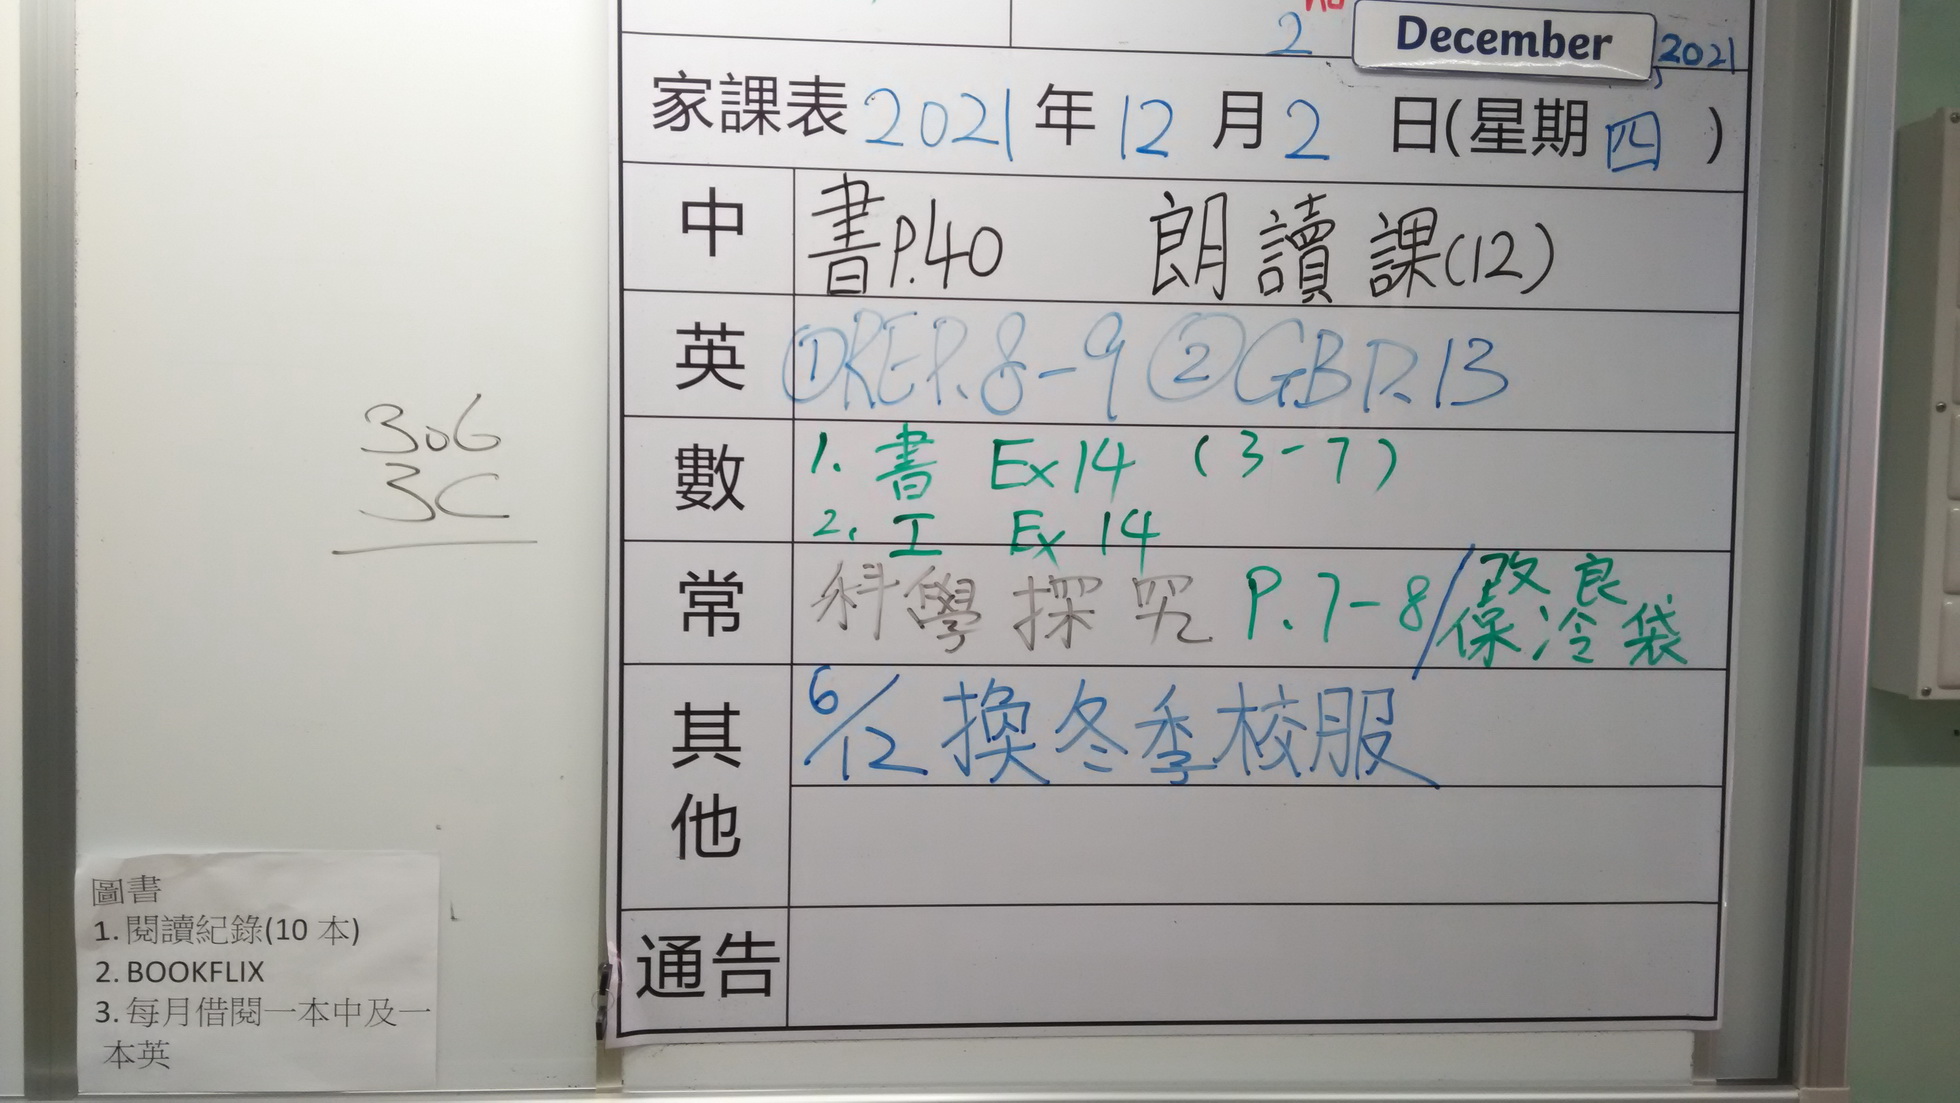 2 December 2021
家課表 2021 年 12 月 2 日(星期 四 )
中 書P.40 朗讀課(12)
英 ①REP.8-9 ②GB P.13
數 1. 書 Ex14 (3-7)
2. 工 Ex 14
常 科學探究 P.7-8/改良
保冷袋
其他 6/12 換冬季校服
通告
306
3C
圖書
1. 閱讀紀錄(10 本)
2. BOOKFLIX
3. 每月借閱一本中及一
本英